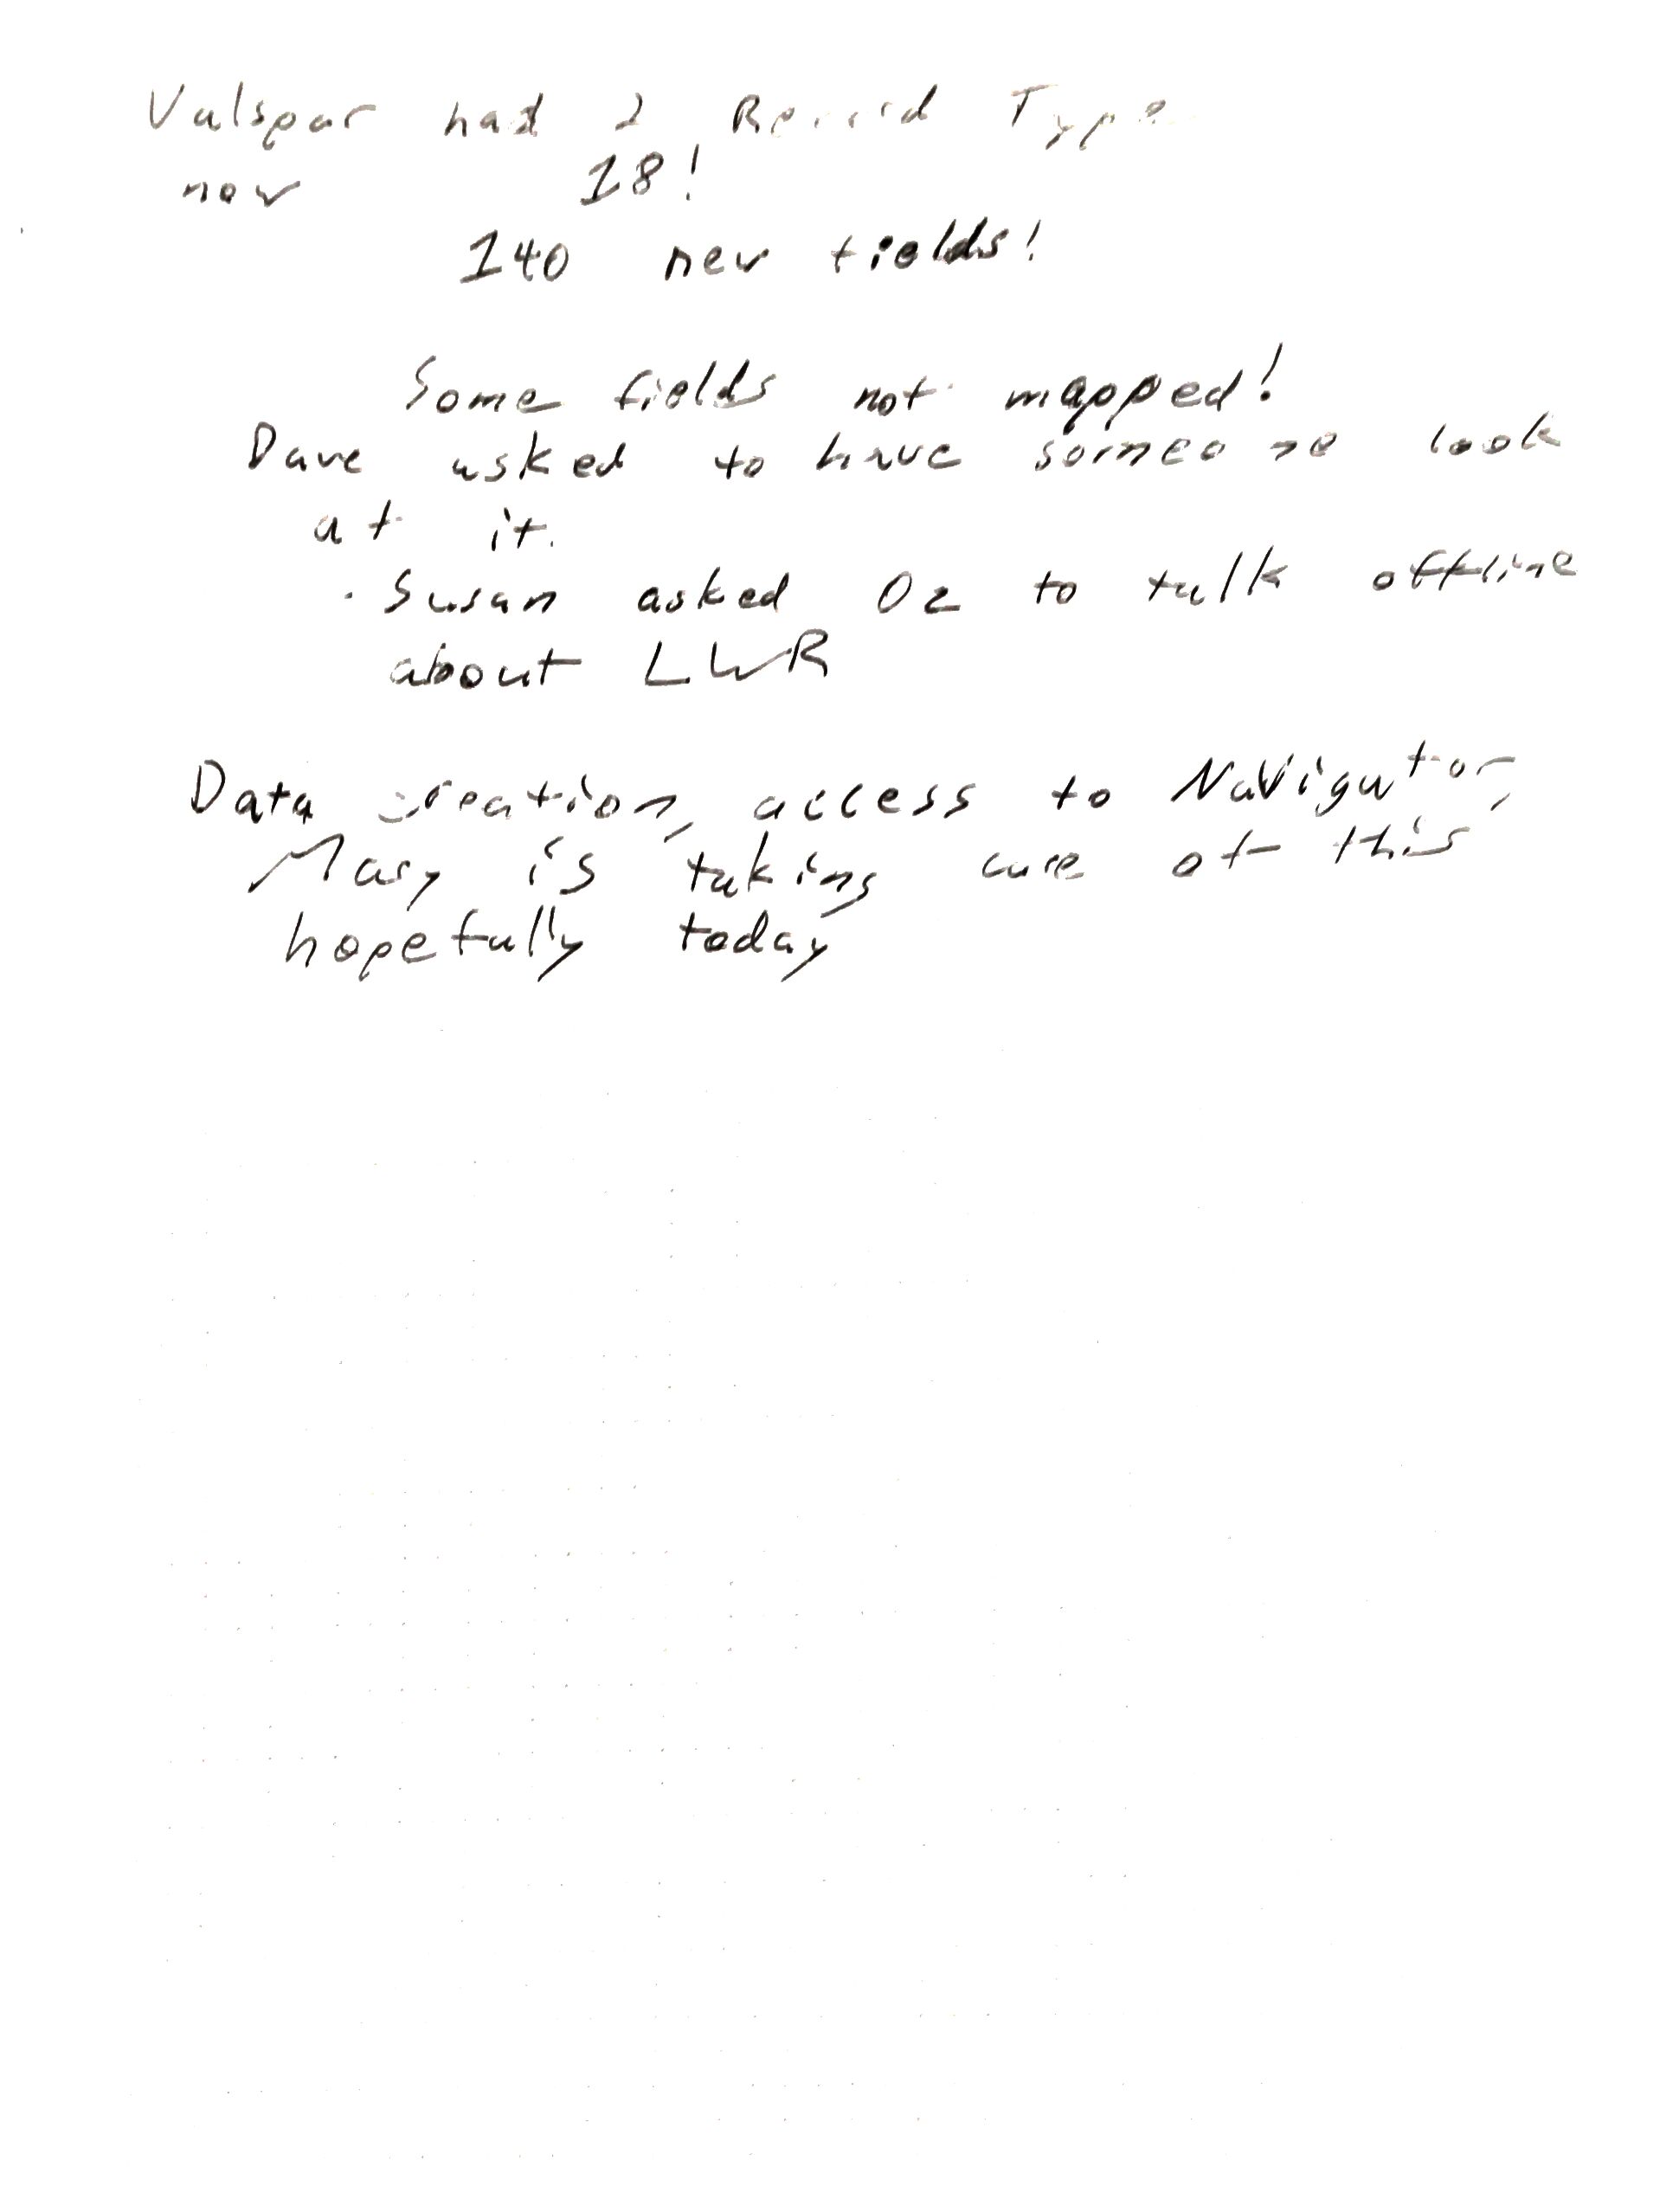 Valspar had 2 Record Type
now 18!
140 new fields!
Some fields not mapped!
Dave asked to have someone look
at it.
. Susan asked Oz to talk offline
about LWR
Data creation, access to Navigator,
Mary is taking care of this
hopefully today